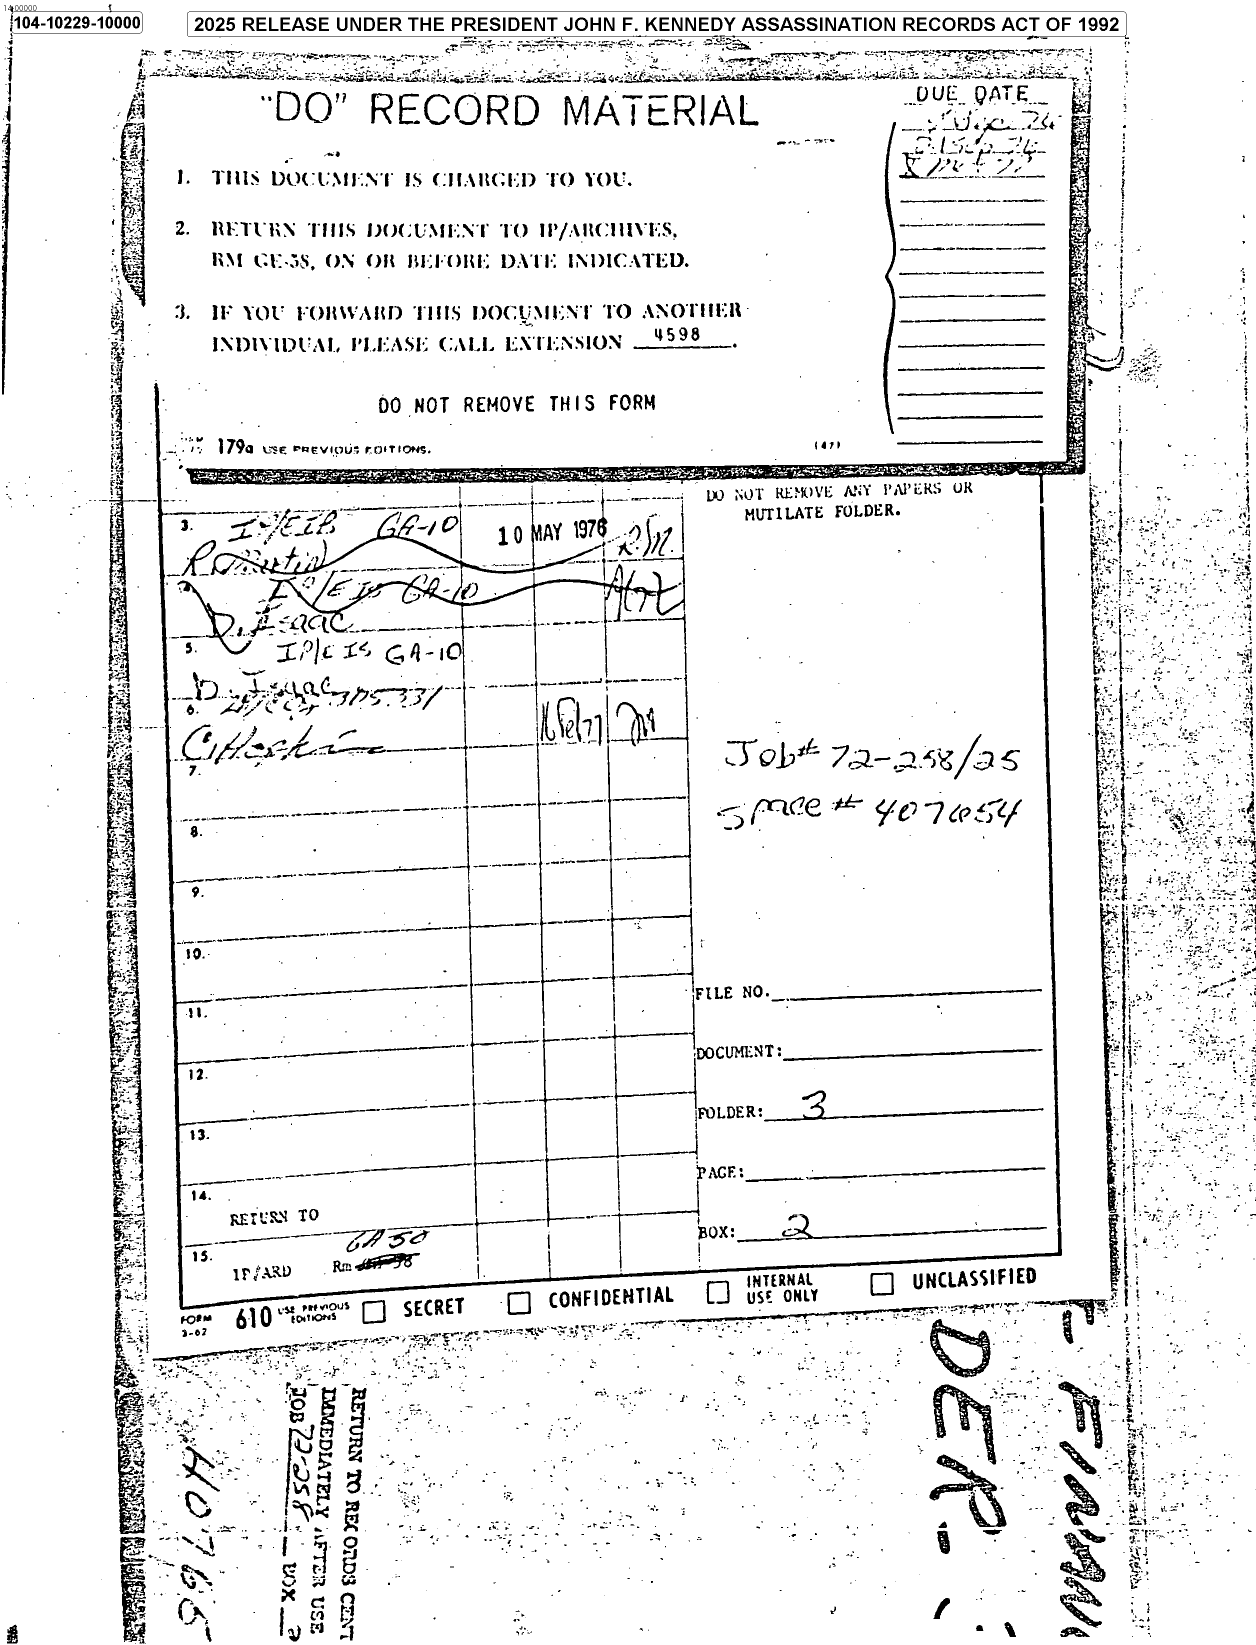 14-00000
104-10229-10000
2025 RELEASE UNDER THE PRESIDENT JOHN F. KENNEDY ASSASSINATION RECORDS ACT OF 1992
"DO" RECORD MATERIAL
DUE DATE
1. THIS DOCUMENT IS CHARGED TO YOU.
2. RETURN THIS DOCUMENT TO IP/ARCHIVES,
RM GE-58, ON OR BEFORE DATE INDICATED.
3. IF YOU FORWARD THIS DOCUMENT TO ANOTHER
INDIVIDUAL PLEASE CALL EXTENSION 4598.
DO NOT REMOVE THIS FORM
179a USE PREVIOUS EDITIONS. (47)
DO NOT REMOVE ANY PAPERS OR
MUTILATE FOLDER.
3. IP/EIS GA-10 10 MAY 1976
R Martin
4. IP/EIS GA-10
D. Isaac
5. IP/EIS GA-10
D. Isaac
6.
16 Feb 77
7.
Job# 72-258/25
Space #
8.
9.
10.
FILE NO.
11.
DOCUMENT:
12.
FOLDER: 3
13.
PAGE:
14.
RETURN TO
BOX: 2
15. GA 50
IP/ARD Rm
FORM 3-62 610 USE PREVIOUS EDITIONS SECRET CONFIDENTIAL INTERNAL USE ONLY UNCLASSIFIED
RETURN TO RECORDS CENT
IMMEDIATELY AFTER USE
JOB 72-258 BOX 2
DER